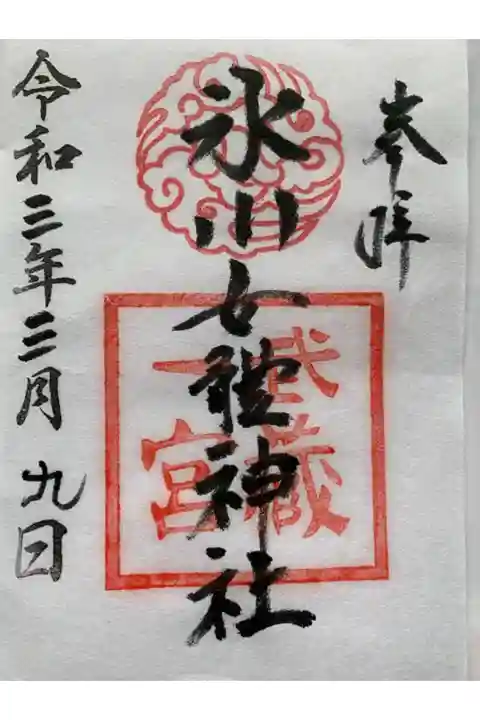 奉拝
氷川女體神社
武蔵
一宮
令和三年三月九日